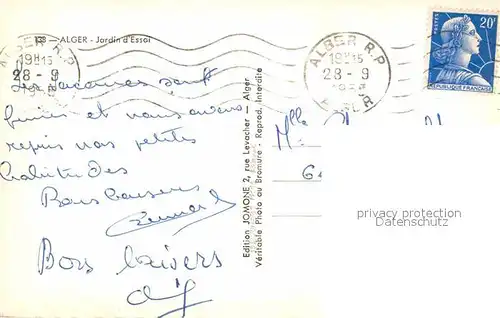 138 - ALGER - Jardin d'Essai
ALGER R.P
19H15
28 - 9
ALGER R.P
19H15
28 - 9
ALGER
POSTES
20F
REPUBLIQUE FRANÇAISE
Les vacances sont
finies et nous avons
repris nos petites
habitudes
Bons baisers
Bons baisers
Edition JOMONE 2, rue Levacher - Alger
Véritable Photo au Bromure - Reprod. Interdite
Mlle
privacy protection
Datenschutz